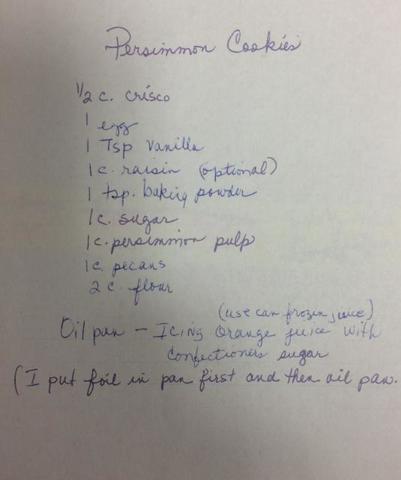 Persimmon Cookies
1/2 c. crisco
1 egg
1 Tsp Vanilla
1 c. raisin (optional)
1 tsp. baking powder
1 c. sugar
1 c. persimmon pulp
1 c. pecans
2 c. flour
(use can frozen juice)
Oil pan - Icing Orange juice with
confectioners sugar
(I put foil in pan first and then oil pan.